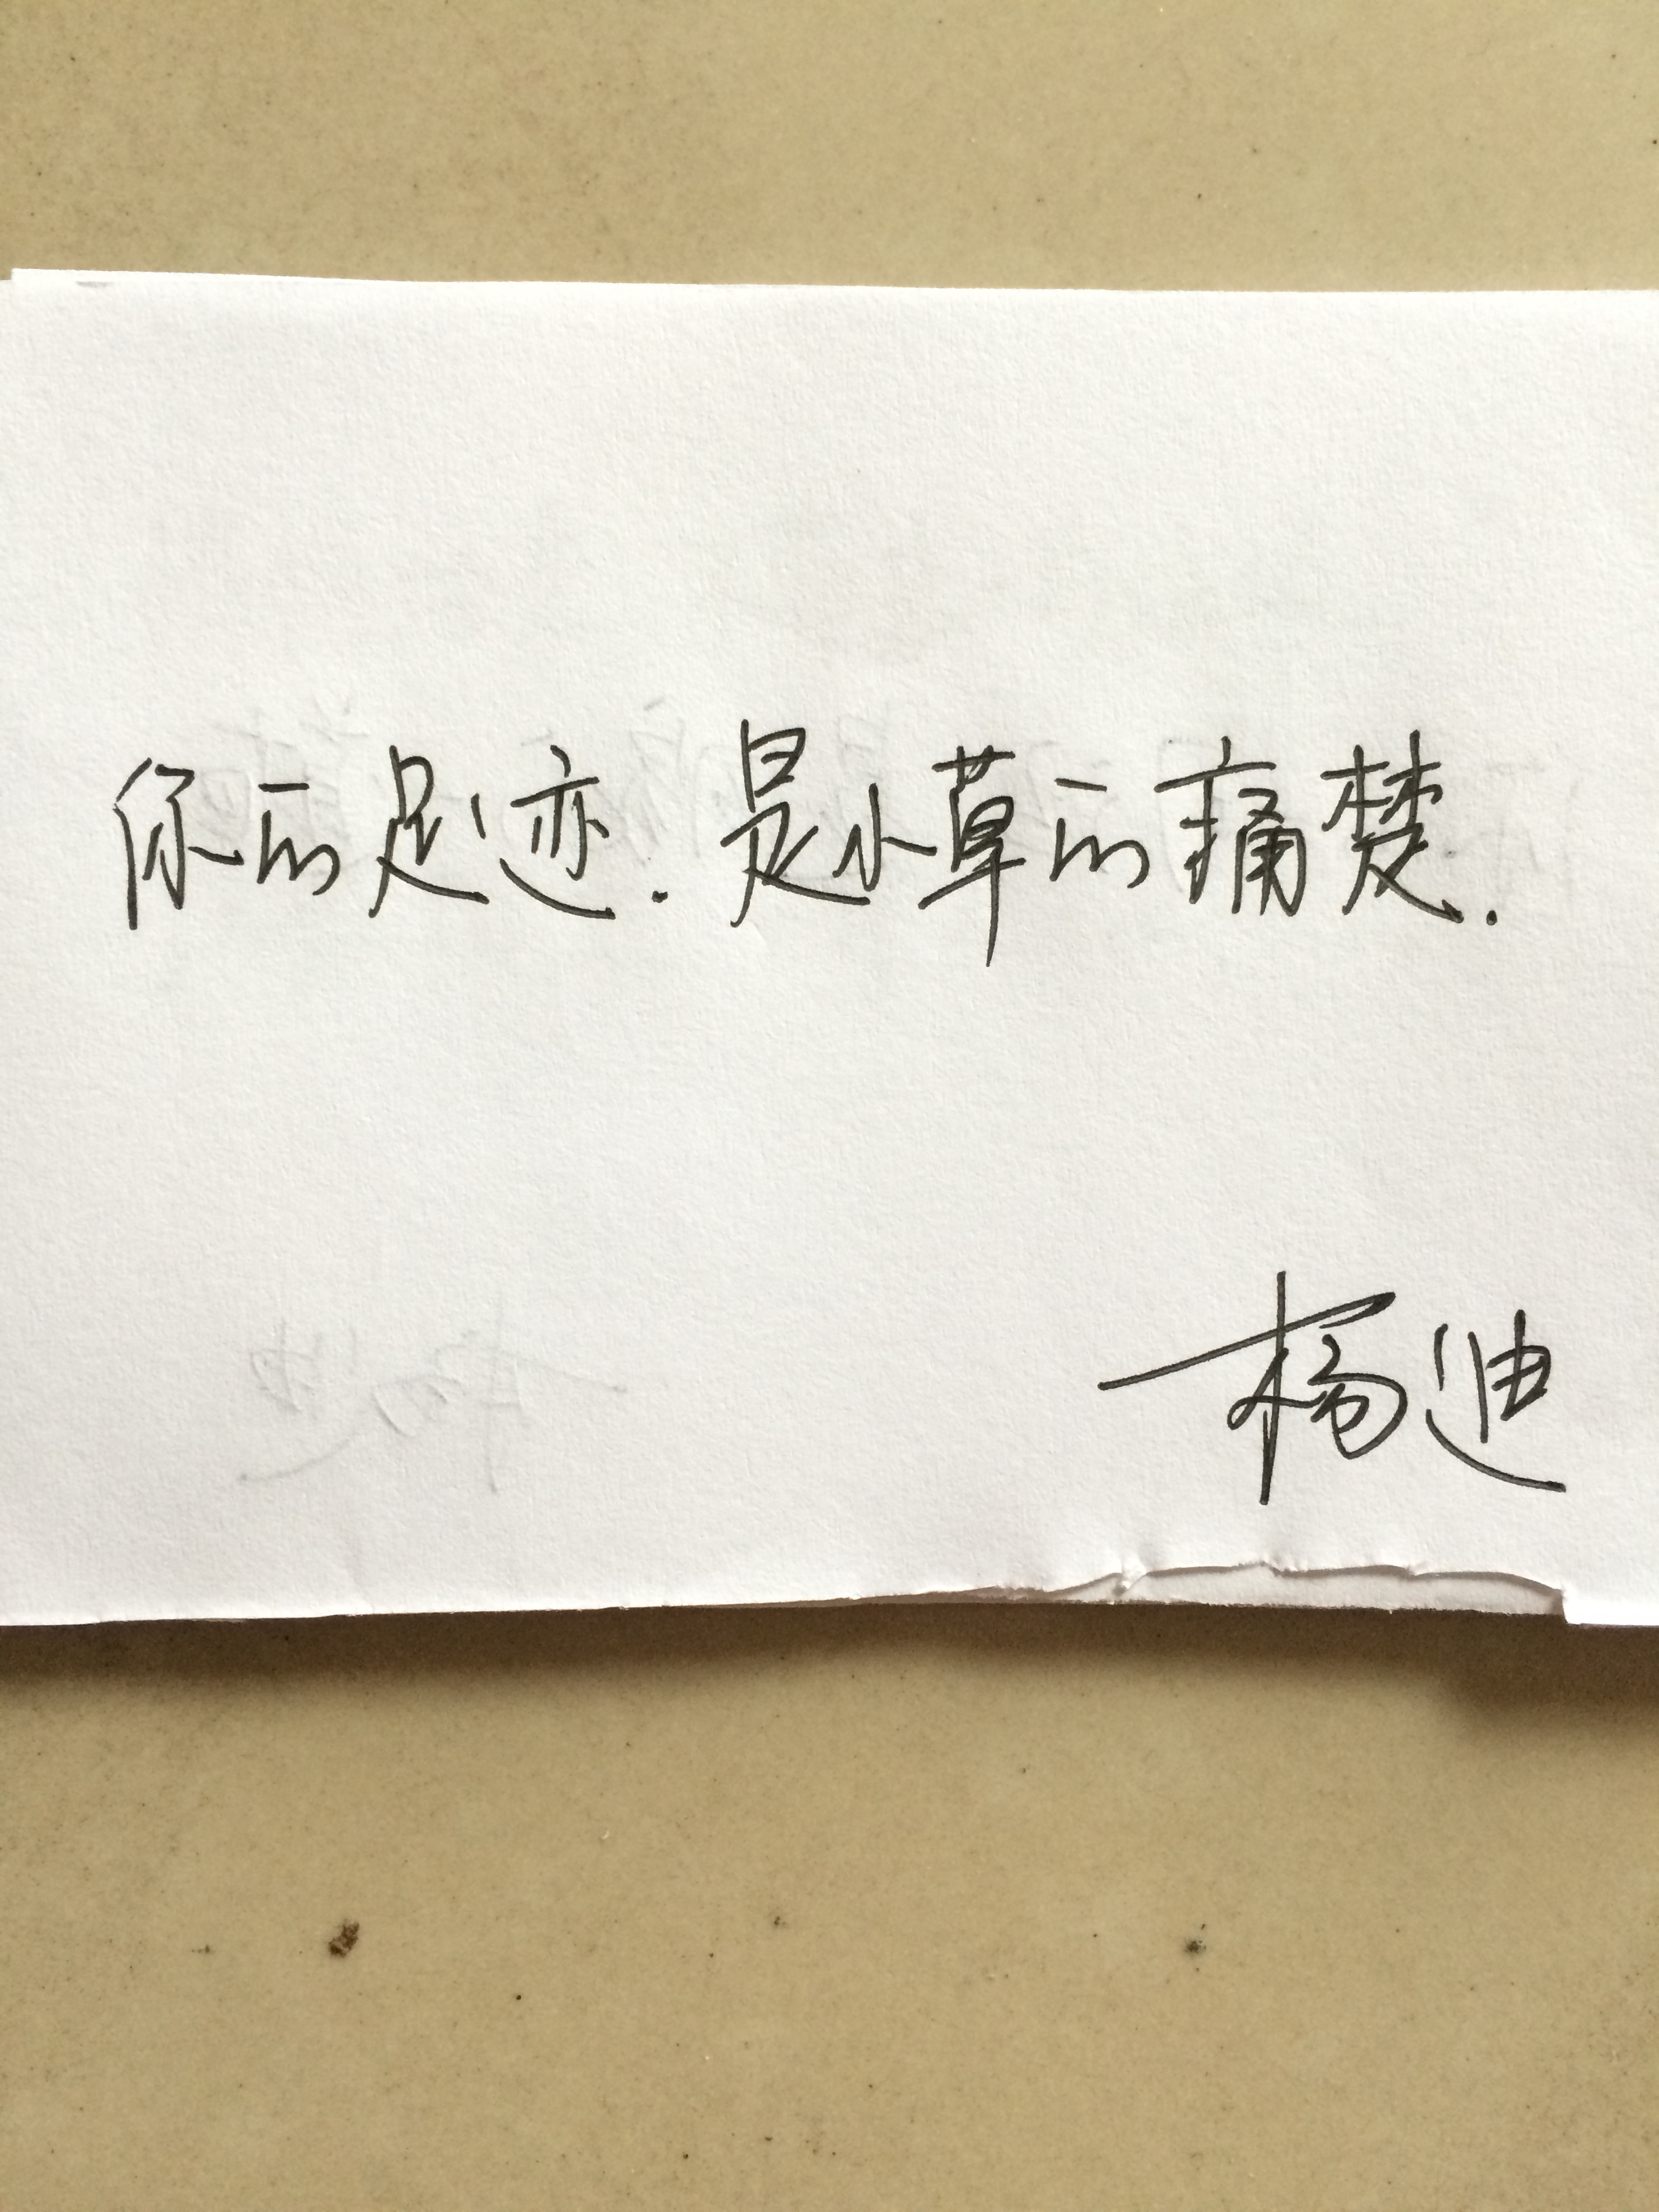 你的足迹.是小草的痛楚.
杨迪